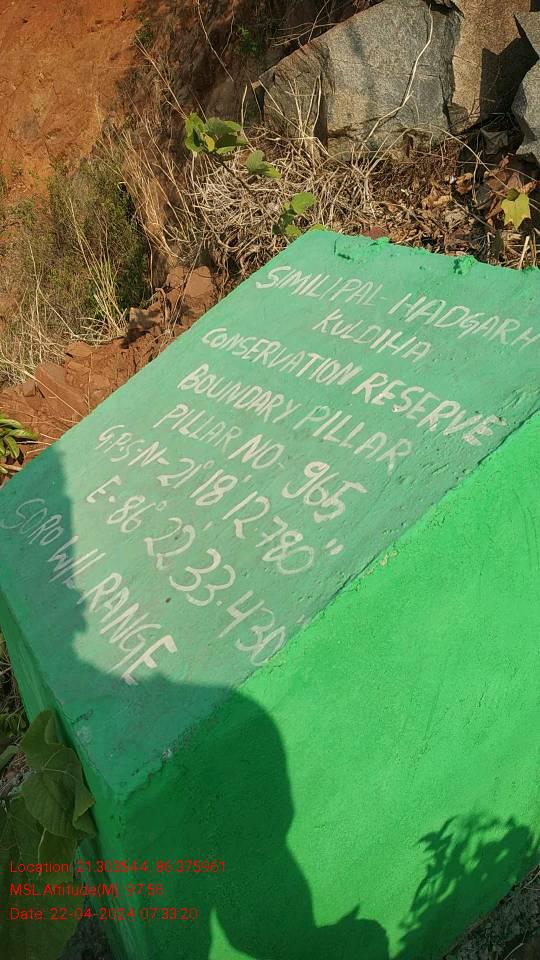 SIMILIPAL-HADGARH
KULDIHA
CONSERVATION RESERVE
BOUNDARY PILLAR
PILLAR NO- 965
G.P.S-N-21°18'12.780"
E-86°22'33.430"
SORO W/L RANGE
Location: 21.303544, 86.375961
MSL Altitude(M): 97.56
Date: 22-04-2024 07:33:20